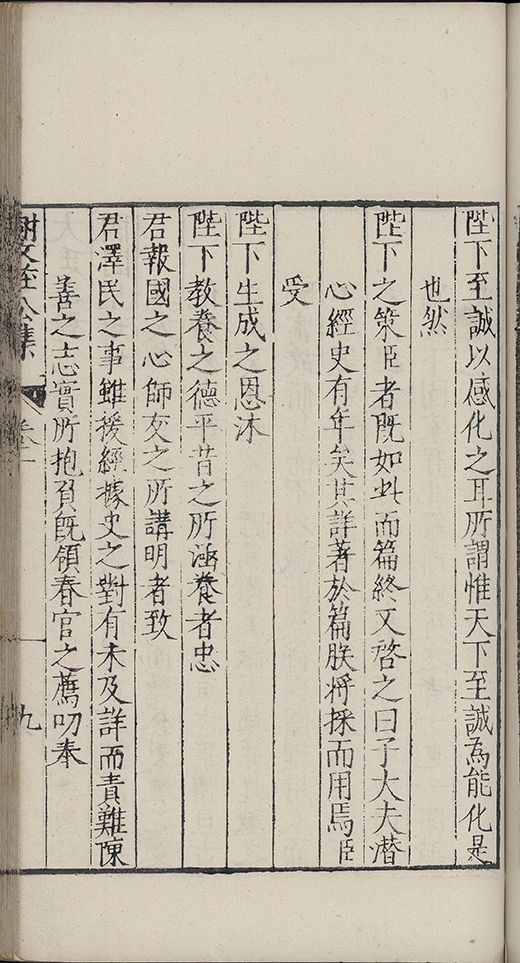 陛下至誠以感化之耳所謂惟天下至誠為能化是
也然
陛下之策臣者既如此而篇終又啓之曰子大夫潛
心經史有年矣其詳著於篇朕將採而用焉臣
受
陛下生成之恩沐
陛下教養之德平昔之所涵養者忠
君報國之心師友之所講明者致
君澤民之事雖援經據史之對有未及詳而責難陳
善之志實所抱負既領春官之薦叨奉
謝文莊公集
卷一
九